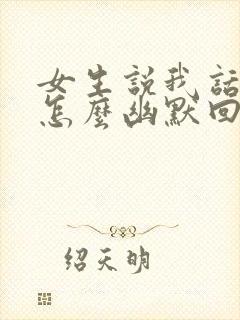 女生説我話
怎麽幽默回
绍天明